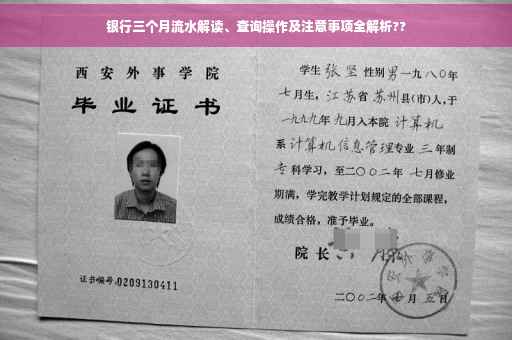 银行三个月流水解读、查询操作及注意事项全解析??
西安外事学院
毕业证书
证书编号:0209130411
学生 张坚 性别 男 一九八〇年
七月生，江苏省苏州县(市)人,于
一九九九年九月入本院 计算机
系 计算机信息管理专业 三 年制
专科学习，至二〇〇二年 七月修业
期满，学完教学计划规定的全部课程,
成绩合格，准予毕业。
院长
二〇〇二年 月 五日